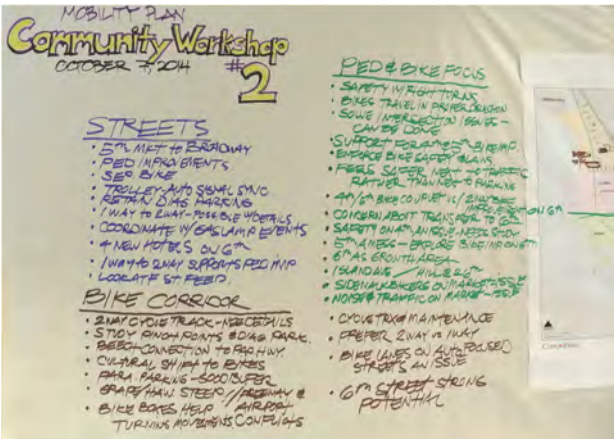 MOBILITY PLAN
Community Workshop
OCTOBER 7, 2014 #2
STREETS
• 5TH MKT TO BROADWAY
• PED IMPROVEMENTS
• SEP BIKE
• TROLLEY-AUTO SIGNAL SYNC.
• RETAIN DIAG PARKING
• 1 WAY TO 2WAY-POSSIBLE W/DETAILS
• COORDINATE W/GASLAMP EVENTS
• 4 NEW HOTELS ON 6TH
• 1 WAY TO 2WAY SUPPORTS PED IMP
• LOOK AT F ST FEED.
BIKE CORRIDOR
• 2WAY CYCLE TRACK - NEED DETAILS
• STUDY PINCH POINTS & DIAG PARK.
• BEECH CONNECTION TO PAC HWY.
• CULTURAL SHIFT TO BIKES
• PARA. PARKING - GOOD BUFFER
• GRAPE/HAW STEEP // FREEWAY &
AIRPORT
• BIKE BOXES HELP
TURNING MOVEMENTS CONFLICTS
PED & BIKE FOCUS
• SAFETY W/RIGHT TURNS
• BIKES TRAVEL IN PROPER DIRECTION
• SOME INTERSECTION ISSUES -
CAN BE DONE
• SUPPORT FOR BIKE IMP.
• ENFORCE BIKE SAFETY & LAWS
• FEELS SAFER NEXT TO TRAFFIC
RATHER THAN NEXT TO PARKING
• 4TH/5TH BIKE COUPLET VS/ 2WAY BIKE
IMPROVEMENT ON 6TH
• CONCERN ABOUT TRANSFER TO 6TH
• SAFETY ON 4TH AN ISSUE-NEEDS STUDY
• 5TH A MESS - EXPLORE BIKE IMP ON 6TH
• 6TH AS GROWTH AREA
• ISLAND AVE / 6TH
• SIDEWALK BIKERS ON MARKET - ISSUE
• NOISE & TRAFFIC ON MARKET - ISSUE
• CYCLE TRX & MAINTENANCE
• PREFER 2WAY VS 1WAY
• BIKE LANES ON AUTO FOCUSED
STREETS AN ISSUE
• 6TH STREET STRONG
POTENTIAL